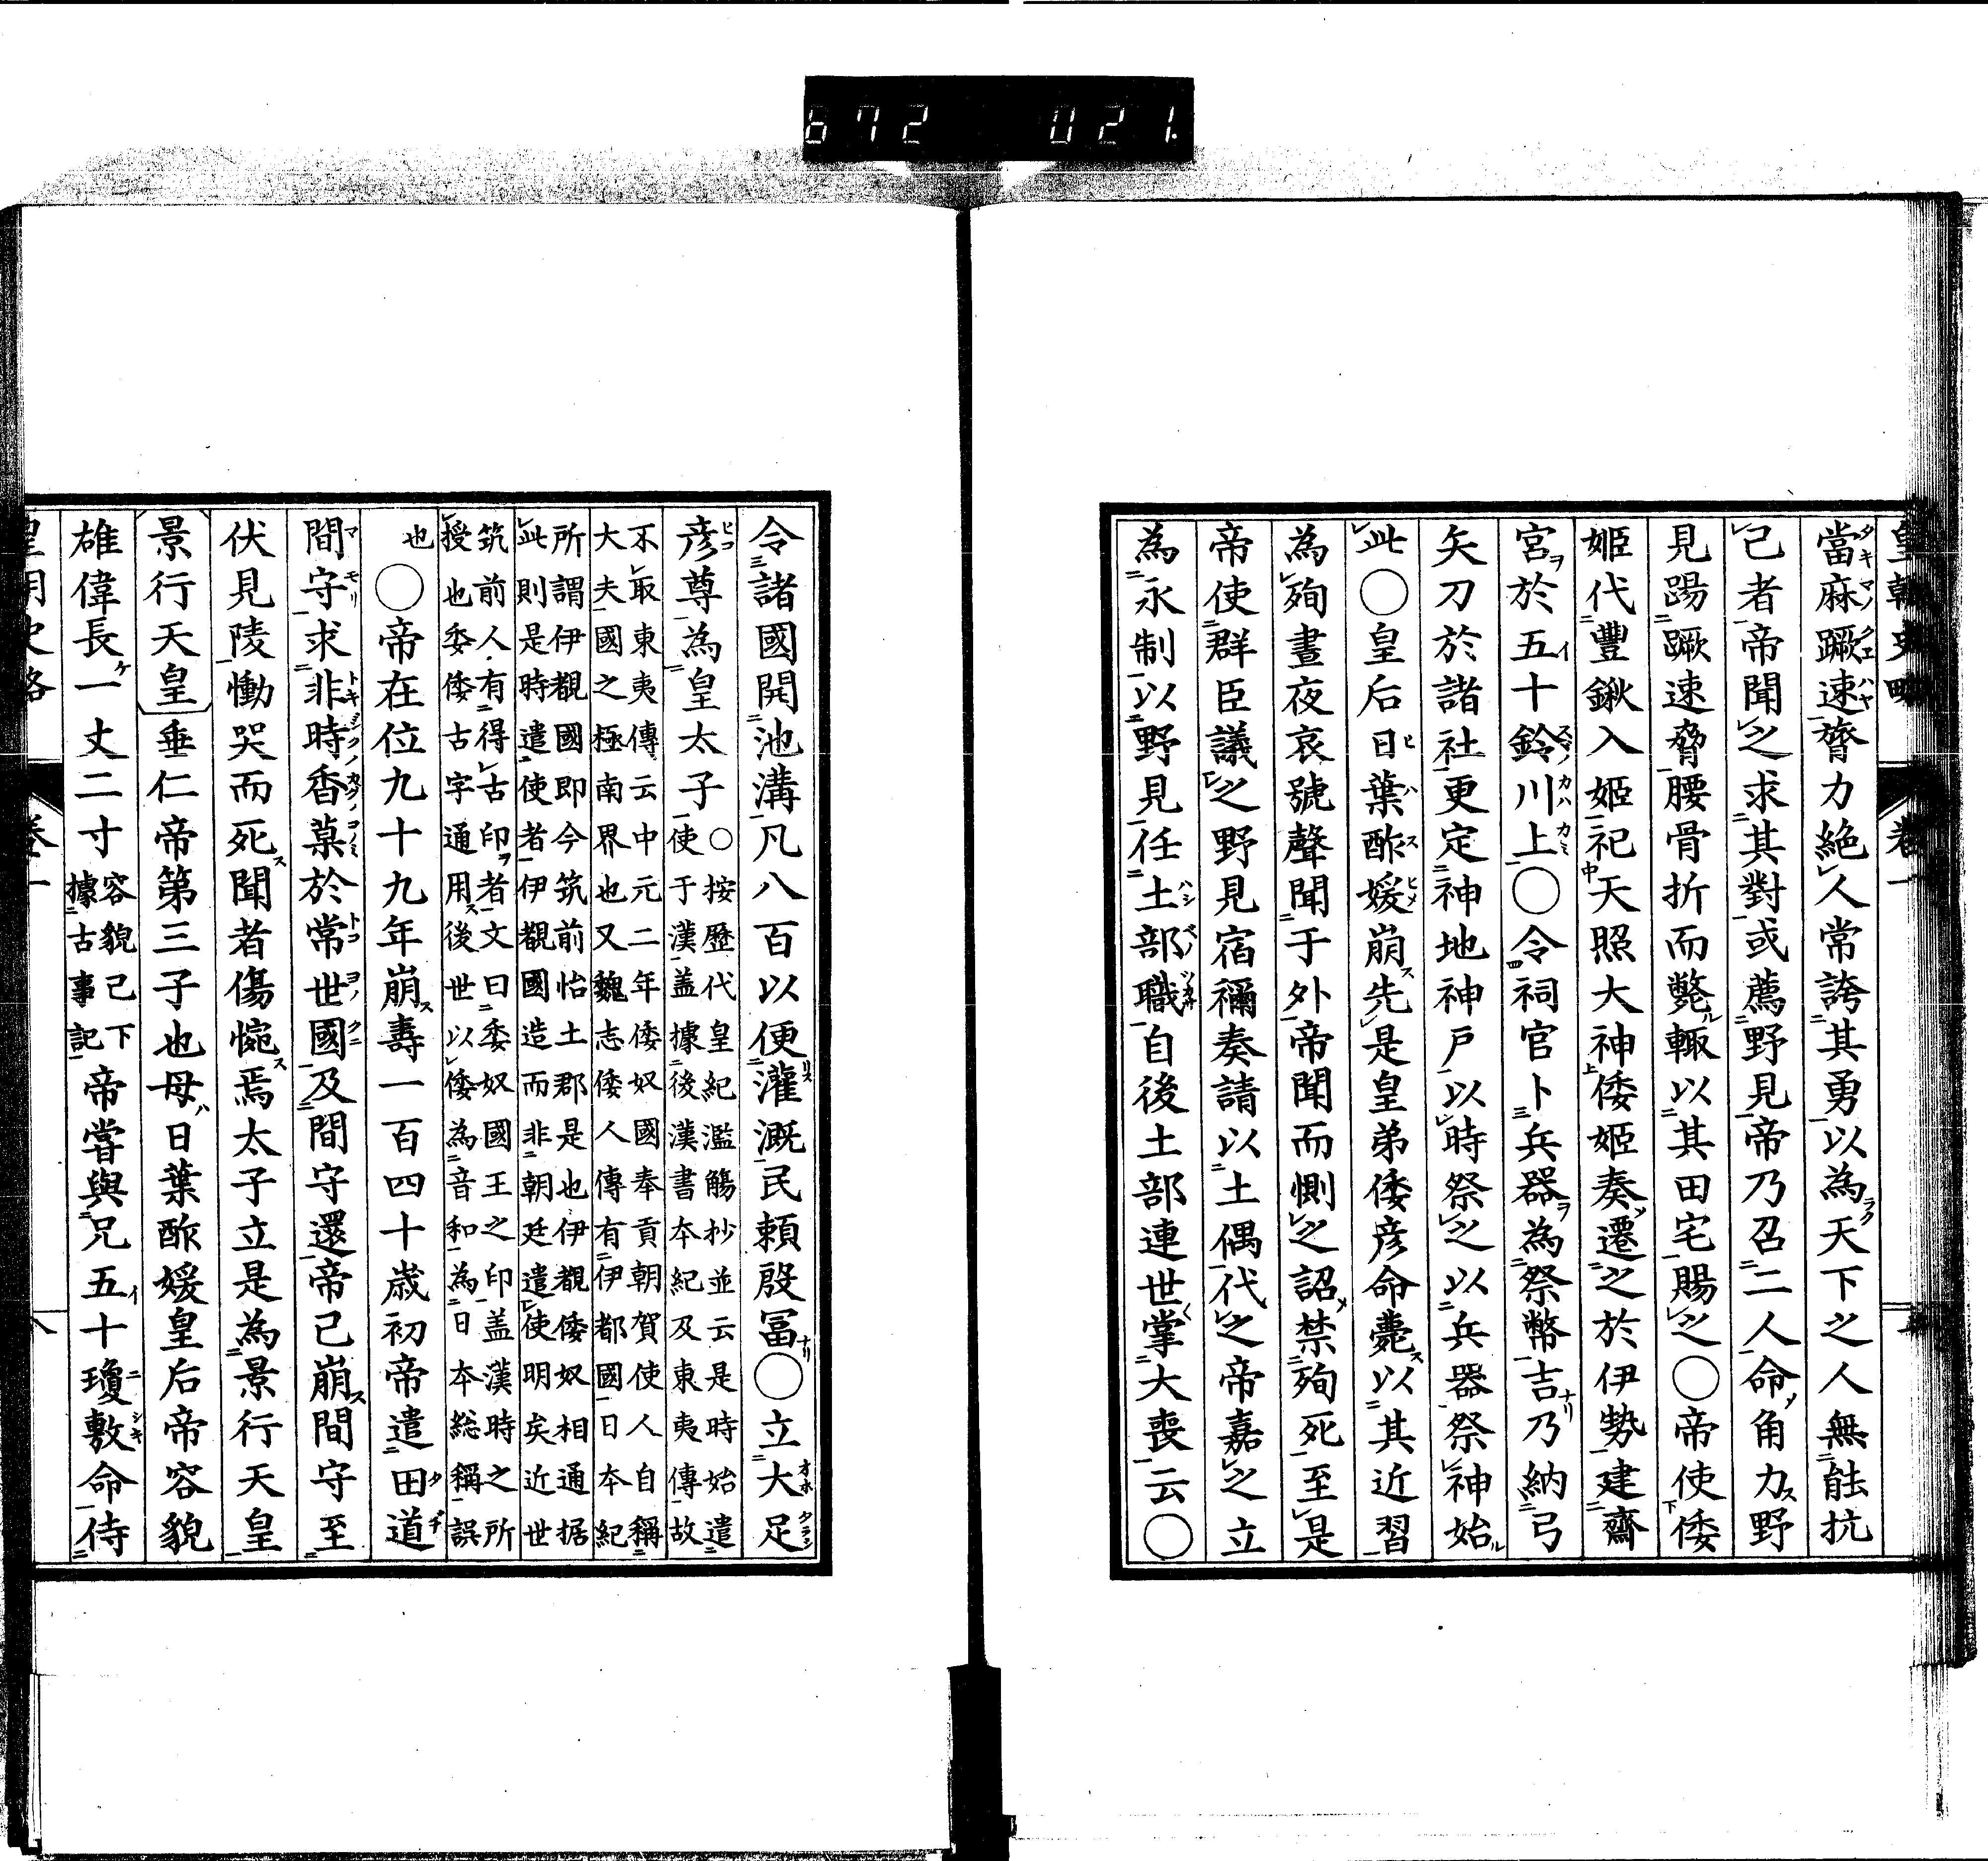 672 021.
皇朝史略 卷一
當麻蹶速膂力絶人常誇其勇以為天下之人無能抗
己者帝聞之求其對或薦野見帝乃召二人命角力野
見踢蹶速脅腰骨折而斃輙以其田宅賜之○帝使倭
姬代豐鍬入姬祀天照大神倭姬奏遷之於伊勢建齋
宮於五十鈴川上○令祠官卜兵器為祭幣吉乃納弓
矢刀於諸社更定神地神戶以時祭之以兵器祭神始
此○皇后日葉酢媛崩先是皇弟倭彦命薨以其近習
為殉晝夜哀號聲聞于外帝聞而惻之詔禁殉死至是
帝使群臣議之野見宿禰奏請以土偶代之帝嘉之立
為永制以野見任土部職自後土部連世掌大喪云○
令諸國開池溝凡八百以便灌溉民頼殷冨○立大足
彦尊為皇太子○按歷代皇紀濫觴抄並云是時始遣
使于漢盖據後漢書本紀及東夷傳故
不取東夷傳云中元二年倭奴國奉貢朝賀使人自稱
大夫國之極南界也又魏志倭人傳有伊都國日本紀
所謂伊覩國即今筑前怡土郡是也伊覩倭奴相通据
此則是時遣使者伊覩國造而非朝廷遣使明矣近世
筑前人有得古印者文曰委奴國王之印盖漢時之所
授也委倭古字通用後世以倭為音和為日本総稱誤
也○帝在位九十九年崩壽一百四十歲初帝遣田道
間守求非時香菓於常世國及間守還帝已崩間守至
伏見陵慟哭而死聞者傷惋焉太子立是為景行天皇
景行天皇垂仁帝第三子也母日葉酢媛皇后帝容貌
雄偉長一丈二寸容貌已下
據古事記帝嘗與兄五十瓊敷命侍
皇朝史略 卷一 八